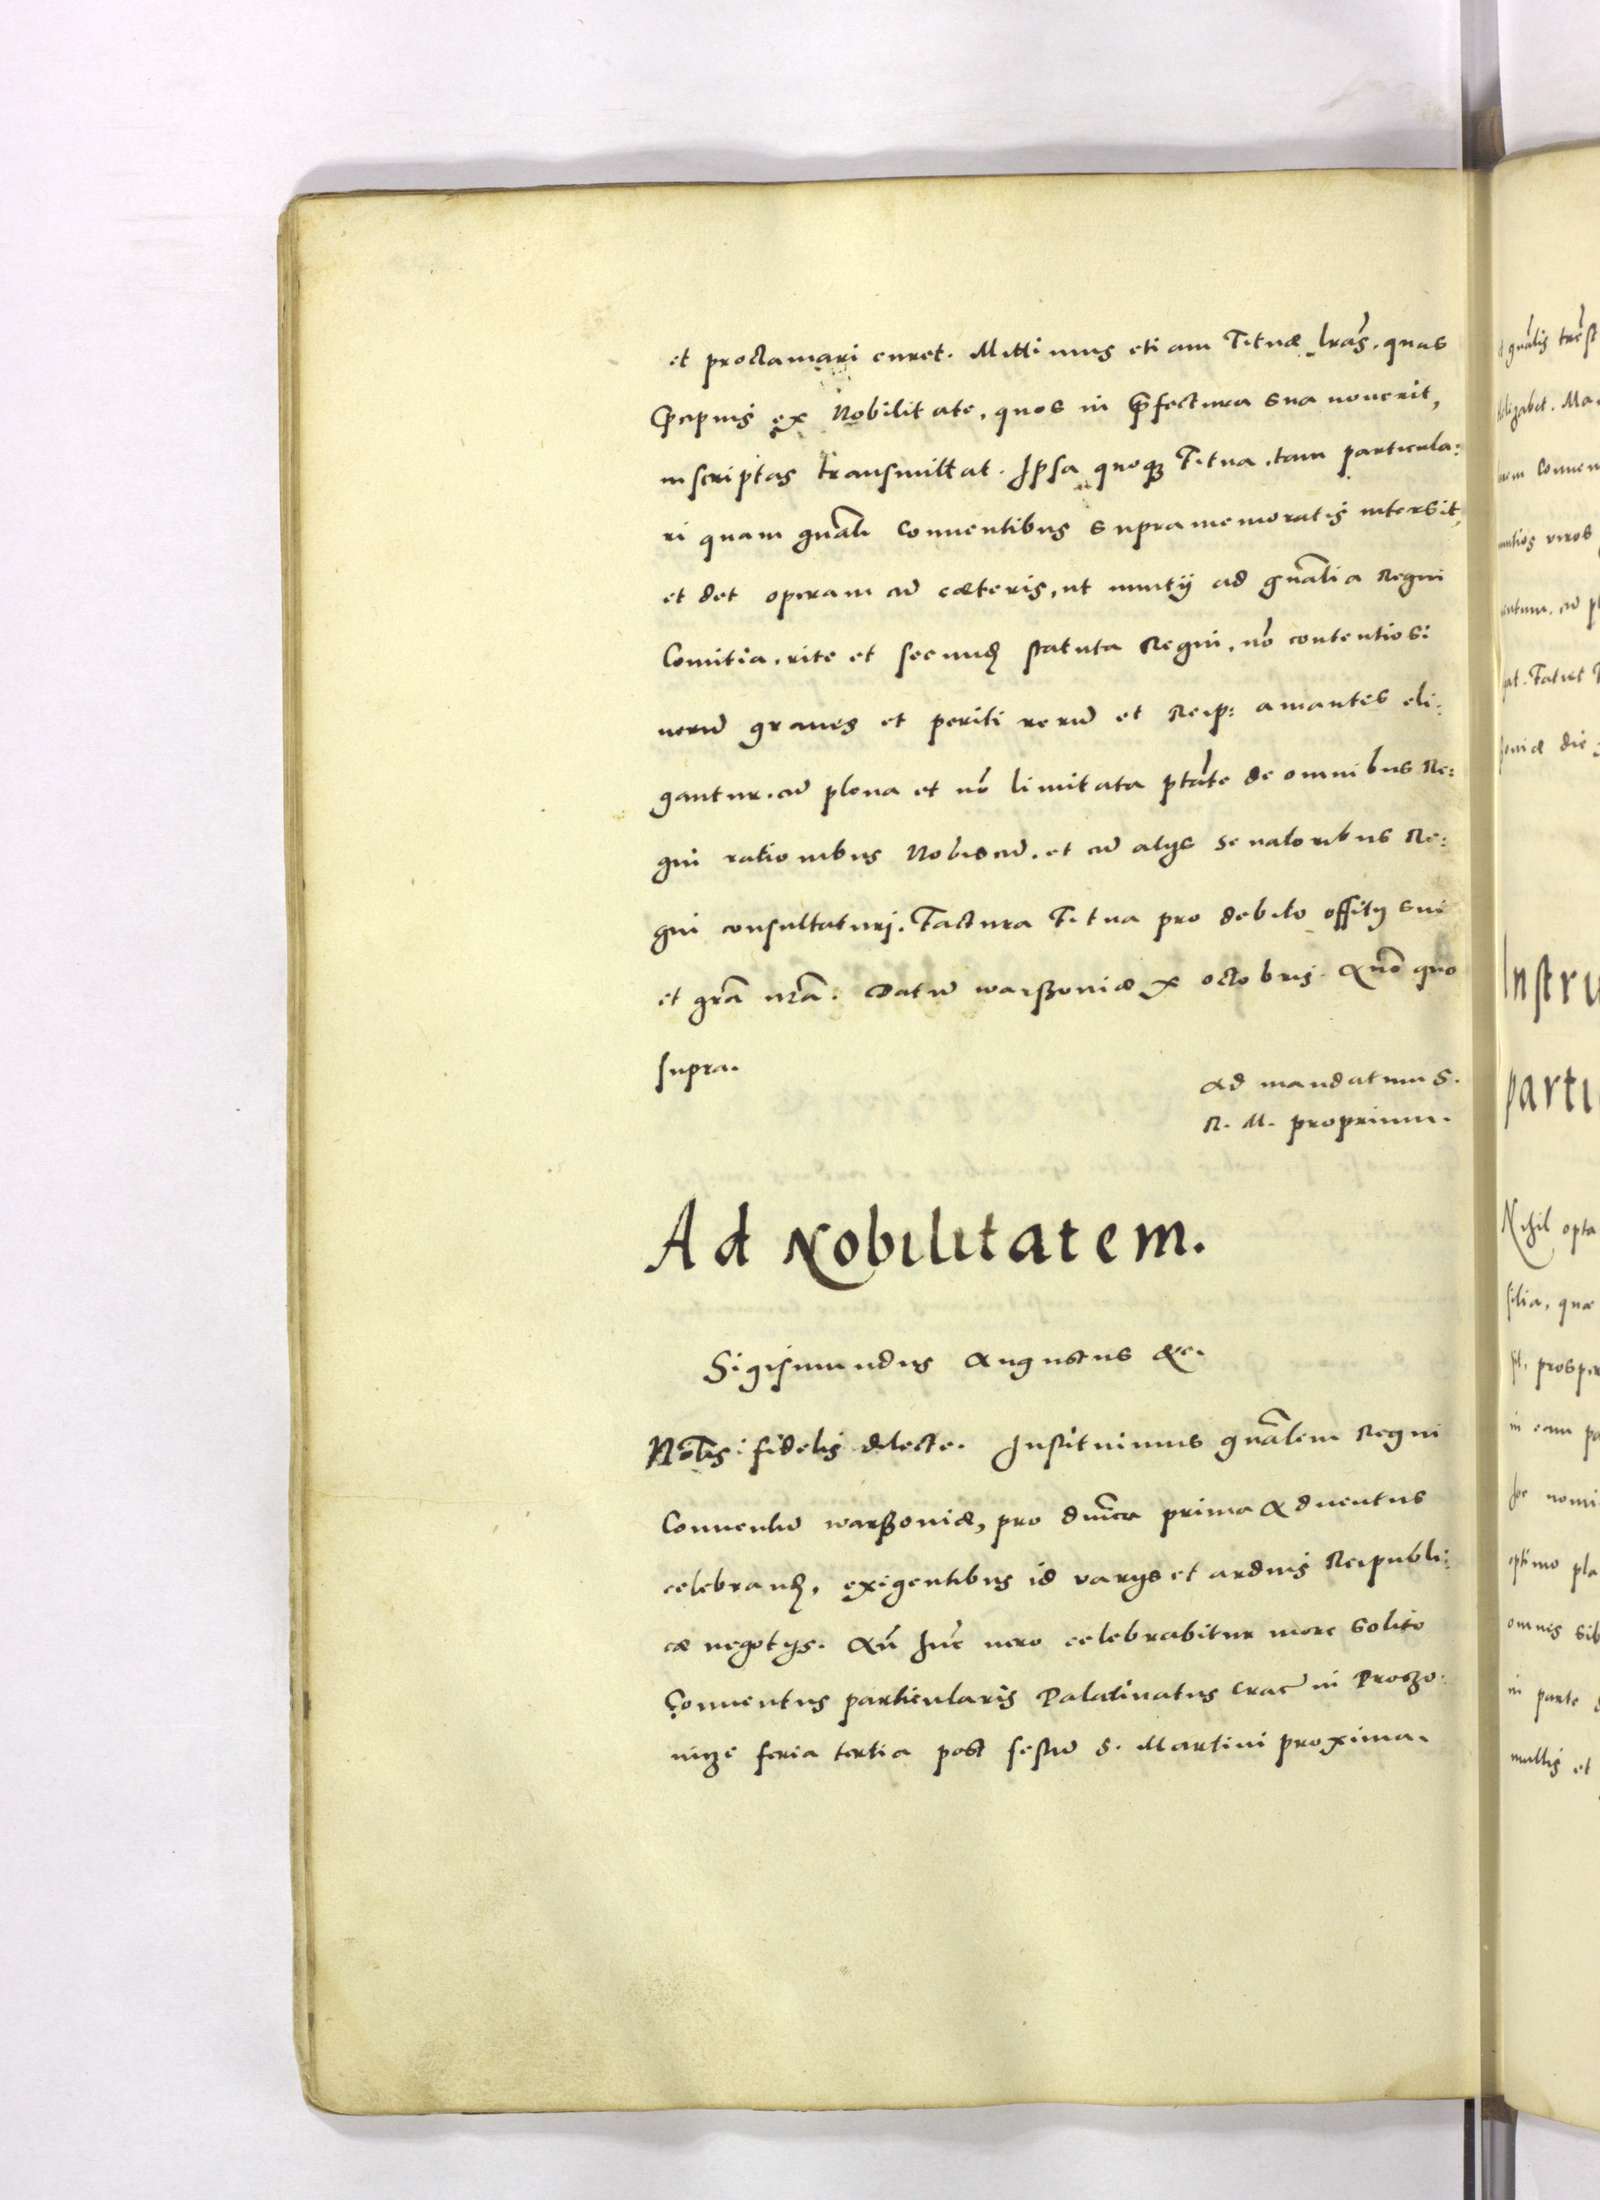 et proclamari curet. Mittimus etiam F. tuæ lrās, quas
Præcipuis ex Nobilitate, quos in Præfectura sua nouerit,
inscriptas transmittat. Ipsa quoqз F. tua, tam particula:
ri quam gnāli Conuentibus supramemoratis intersit,
et det operam cū cæteris, ut nuntij ad gnālia Regni
Comitia, rite et secund. statuta Regni, nō contentiosi
uerū graues et periti rerū et Reip: amantes eli:
gantur, cū plena et nō limitata ptāte de omnibus Re:
gni rationibus Nobiscū, et cū alijs Senatoribus Re:
gni consultaturi. Factura F. tua pro debito offitij sui
et grā nrā. Datū Warssouiæ X octobris. Anō quo
supra.
Ad mandatum S.
R. M. proprium.
Ad Nobilitatem.
Sigismundus Augustus &c.
Nobis: fidelis dilecte. Instituimus gnālem Regni
Conuentū Warssouiæ, pro dnīca prima Aduentus
celebrand. exigentibus id varijs et arduis Reipubli:
cæ negotijs. An hūc uero celebrabitur more solito
Conuentus particularis Palatinatus Crac̄ in Proszo:
uicze feria tertia post festū S. Martini proxima.
gnālis
Conuen
Instru
parti
Nihil opta
silia, quæ
sit, prosper
in eam pa
hoc nomi
optimo pla
omnes sib
in parte
multis et